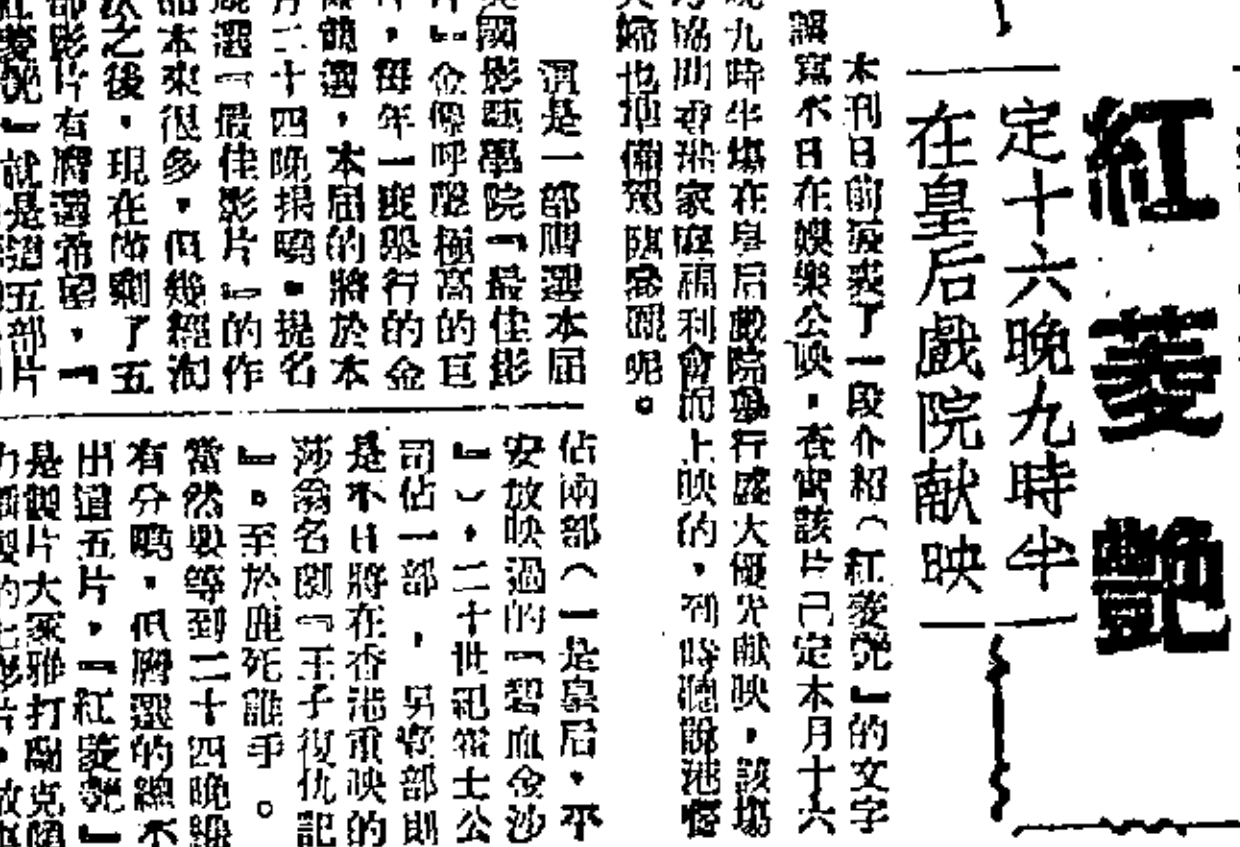 紅菱艷
定十六晚九時半
在皇后戲院献映
本刊日前發表了一段介紹(紅菱艷』的文字
誤寫本日在娛樂公映,查實該片已定本月十六
晚九時半塲在皇后戲院舉行盛大優先献映,該塲
協助香港家庭福利會而上映的,到時聽說港督
夫婦也將備駕臨參觀呢。
這是一部膺選本届
美國影藝學院『最佳影
片』金像呼聲極高的巨
片,每年一度舉行的金
像競選,本届的將於本
月二十四晚揭曉。提名
競選『最佳影片』的作
品本來很多,但幾經淘
汰之後,現在尚剩了五
部影片有膺選希望,『
紅菱艷』就是這五部片
佔兩部(一是皇后,平
安放映過的『碧血金沙
』),二十世紀霍士公
司佔一部,另壹部則
是不日將在香港重映的
莎翁名劇『王子復仇記
』。至於鹿死誰手。
當然要等到二十四晚纔
有分曉,但膺選的總不
出這五片,『紅菱艷』
是製片大家雅打蘭克